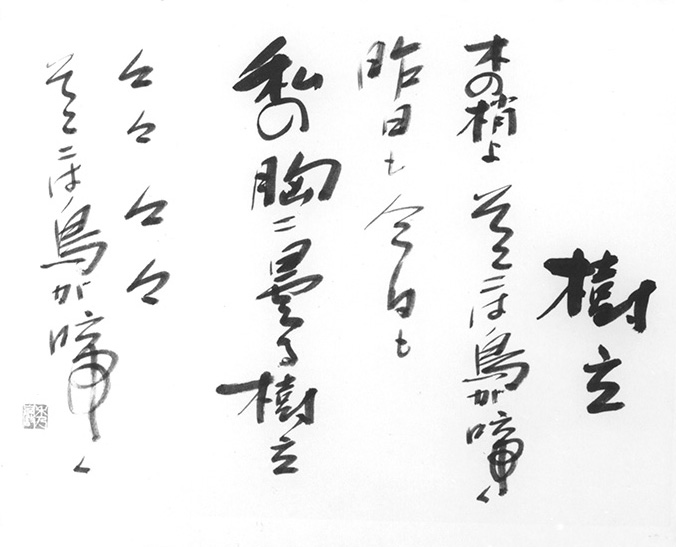 樹立
木の梢よ そこには鳥が啼く
昨日も今日も
私の胸に曇る樹立
そこには鳥が啼く